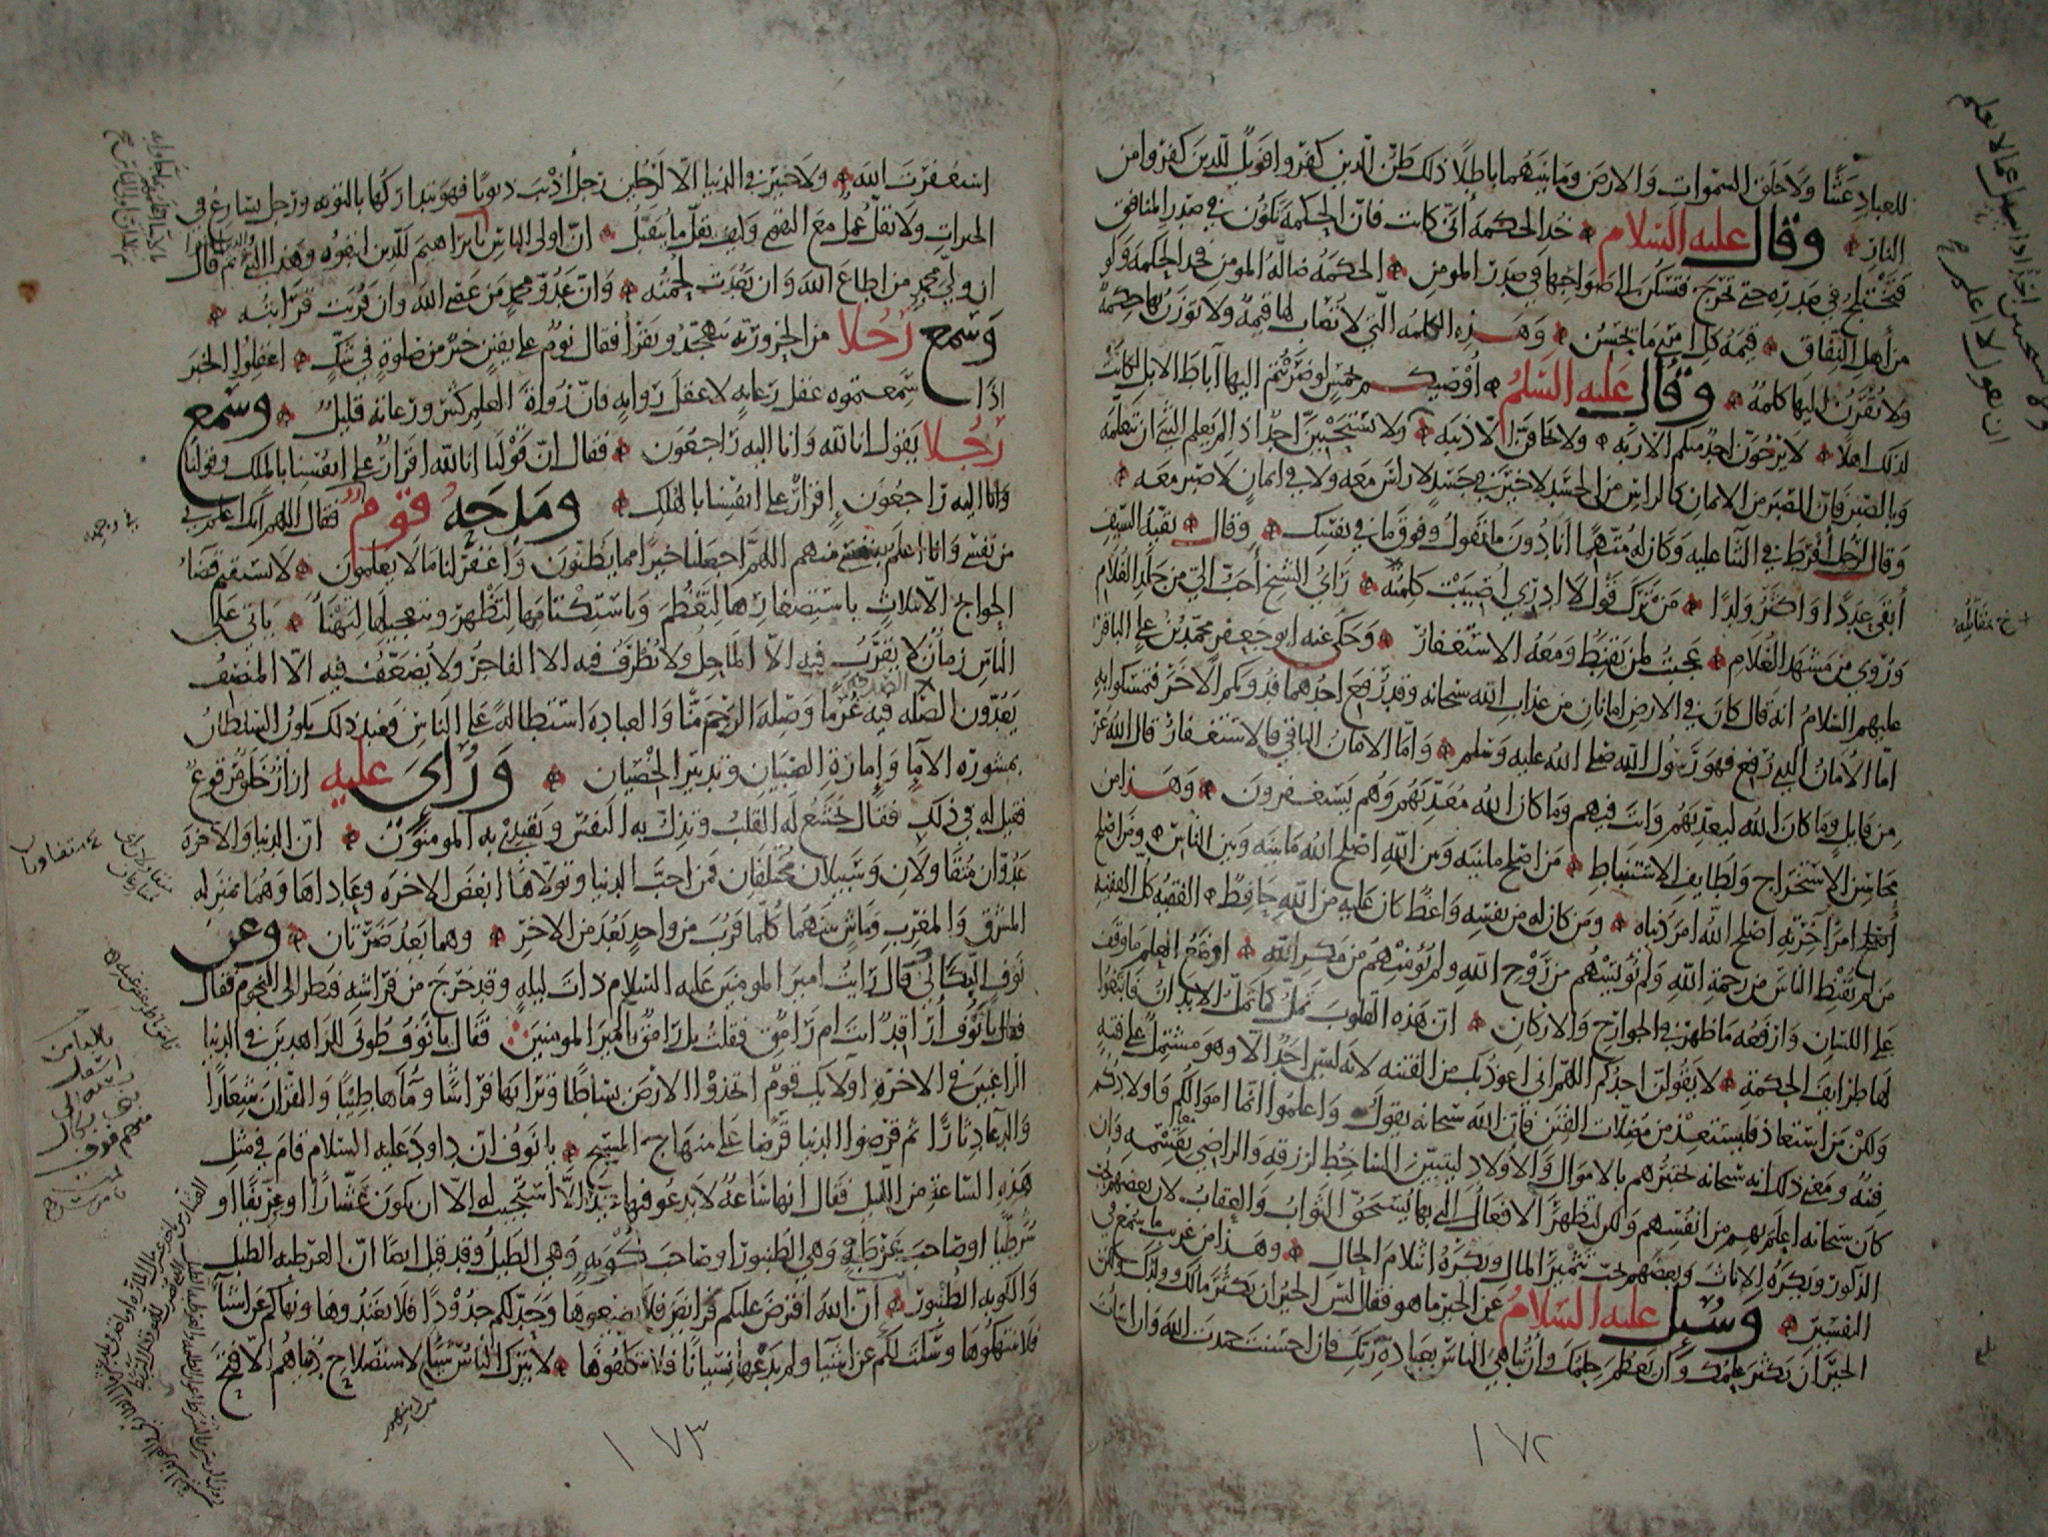 للعباد عبثا ولا خلق السموات والارض وما بينهما باطلا ذلك ظن الذين كفروا فويل للذين كفروا من
النار وقال عليه السلام خذ الحكمة أنى كانت فان الحكمة تكون في صدر المنافق
فتختلج في صدره حتى تخرج فتسكن الى صواحبها في صدر المومن الحكمة ضالة المومن فخذ الحكمة ولو
من أهل النفاق قيمة كل امرئ ما يحسن وهذه الكلمة التي لا تصاب لها قيمة ولا توزن بها حكمة
ولا تقرن اليها كلمة وقال عليه السلم أوصيكم بخمس لو ضربتم اليها آباط الابل لكانت
لذلك اهلا لا يرجون احد منكم الا ربه ولا يخافن الا ذنبه ولا يستحيين احد اذا لم يعلم الشي ان يتعلمه
وبالصبر فان الصبر من الايمان كالراس من الجسد لا خير في جسد لا راس معه ولا في ايمان لا صبر معه
وقال لرجل أفرط في الثنا عليه وكان له متهما أنا دون ما تقول وفوق ما في نفسك وقال بقية السيف
أبقى عددا واكثر ولدا من ترك قول لا ادري اصيبت كلمته رأي الشيخ أحب الي من جلد الغلام
وروي من مشهد الغلام عجبت لمن يقنط ومعه الاستغفار وحكى عنه ابو جعفر محمد بن علي الباقر
عليهم السلام انه قال كان في الارض امانان من عذاب الله سبحانه وقد رفع احدهما فدونكم الاخر فتمسكوا به
اما الامان الذي رفع فهو رسول الله صلى الله عليه وسلم واما الامان الباقي فالاستغفار قال الله عز
من قايل وما كان الله ليعذبهم وانت فيهم وما كان الله معذبهم وهم يستغفرون وهذا من
محاسن الاستخراج ولطايف الاستنباط من اصلح ما بينه وبين الله اصلح الله ما بينه وبين الناس ومن اصلح
امر آخرته اصلح الله امر دنياه ومن كان له من نفسه واعظ كان عليه من الله حافظ الفقيه كل الفقيه
من لم يقنط الناس من رحمة الله ولم يؤيسهم من روح الله ولم يؤمنهم من مكر الله اوضع العلم ما وقف
على اللسان وارفعه ما ظهر في الجوارح والاركان ان هذه القلوب تمل كما تمل الابدان فابتغوا
لها طرايف الحكمة لا يقولن احدكم اللهم اني اعوذ بك من الفتنة لانه ليس احد الا وهو مشتمل على فتنة
ولكن من استعاذ فليستعذ من مضلات الفتن فان الله سبحانه يقول واعلموا انما اموالكم واولادكم
فتنة ومعنى ذلك انه سبحانه يختبرهم بالاموال والاولاد ليتبين الساخط لرزقه والراضي بقسمه وان
كان سبحانه اعلم بهم من انفسهم ولكن لتظهر الافعال التي بها يستحق الثواب والعقاب لان بعضهم يحب
الذكور ويكره الاناث وبعضهم يحب تثمير المال ويكره انثلام الحال وهذا من غريب ما سمع في
التفسير وسيل عليه السلام عن الخير ما هو فقال ليس الخير ان يكثر مالك وولدك ولكن
الخير ان يكثر علمك وان يعظم حلمك وان تباهي الناس بعبادة ربك فان احسنت حمدت الله وان اسات
١٧٢
استغفرت الله ولا خير في الدنيا الا لرجلين رجل أذنب ذنوبا فهو يتداركها بالتوبة ورجل يسارع في
الخيرات ولا يقل عمل مع التقوى وكيف يقل ما يتقبل ان اولى الناس بابراهيم للذين اتبعوه وهذا النبي ثم قال
ان ولي محمد من اطاع الله وان بعدت لحمته وان عدو محمد من عصى الله وان قربت قرابته
وسمع رجلا من الحرورية يتهجد ويقرأ فقال نوم على يقين خير من صلوة في شك اعقلوا الخبر
اذا سمعتموه عقل رعاية لا عقل رواية فان رواة العلم كثير ورعاته قليل وسمع
رجلا يقول انا لله وانا اليه راجعون فقال ان قولنا انا لله اقرار على انفسنا بالملك وقولنا
وانا اليه راجعون إقرار على انفسنا بالهلك ومدحه قوم فقال اللهم انك اعلم بي
من نفسي وانا اعلم بنفسي منهم اللهم اجعلنا خيرا مما يظنون واغفر لنا ما لا يعلمون لا يستقيم قضا
الحوايج الا بثلاث باستصغارها لتعظم وباستكتامها لتظهر وبتعجيلها لتهنا ياتي على
الناس زمان لا يقرب فيه الا الماحل ولا يظرف فيه الا الفاجر ولا يضعف فيه الا المنصف
يعدون الصدقة فيه غرما وصلة الرحم منا والعبادة استطالة على الناس فعند ذلك يكون السلطان
بمشورة الاما وإمارة الصبيان وتدبير الخصيان ورأي عليه ازار خلق مرقوع
فقيل له في ذلك فقال يخشع له القلب وتذل به النفس ويقتدي به المومنون ان الدنيا والاخرة
عدوان متفاوتان وسبيلان مختلفان فمن احب الدنيا وتولاها ابغض الاخرة وعاداها وهما بمنزلة
المشرق والمغرب وماش بينهما كلما قرب من واحد بعد من الاخر وهما بعد ضرتان وعن
نوف البكالي قال رايت امير المومنين عليه السلام ذات ليلة وقد خرج من فراشه فنظر الى النجوم فقال
يا نوف أراقد انت ام رامق فقلت بل رامق يا امير المومنين فقال يا نوف طوبى للزاهدين في الدنيا
الراغبين في الاخرة اوليك قوم اتخذوا الارض بساطا وترابها فراشا وماها طيبا والقران شعارا
والدعا دثارا ثم قرضوا الدنيا قرضا على منهاج المسيح يا نوف ان داود عليه السلام قام في مثل
هذه الساعة من الليل فقال انها ساعة لا يدعو فيها عبد الا استجيب له الا ان يكون عشارا او عريفا او
شرطيا او صاحب عرطبة وهي الطنبور او صاحب كوبة وهي الطبل وقد قيل ايضا ان العرطبة الطبل
والكوبة الطنبور ان الله افترض عليكم فرايض فلا تضيعوها وحد لكم حدودا فلا تعتدوها ونهاكم عن اشيا
فلا تنتهكوها وسكت لكم عن اشيا ولم يدعها نسيانا فلا تتكلفوها لا يترك الناس شيا لاستصلاح دنياهم الا فتح
١٧٣